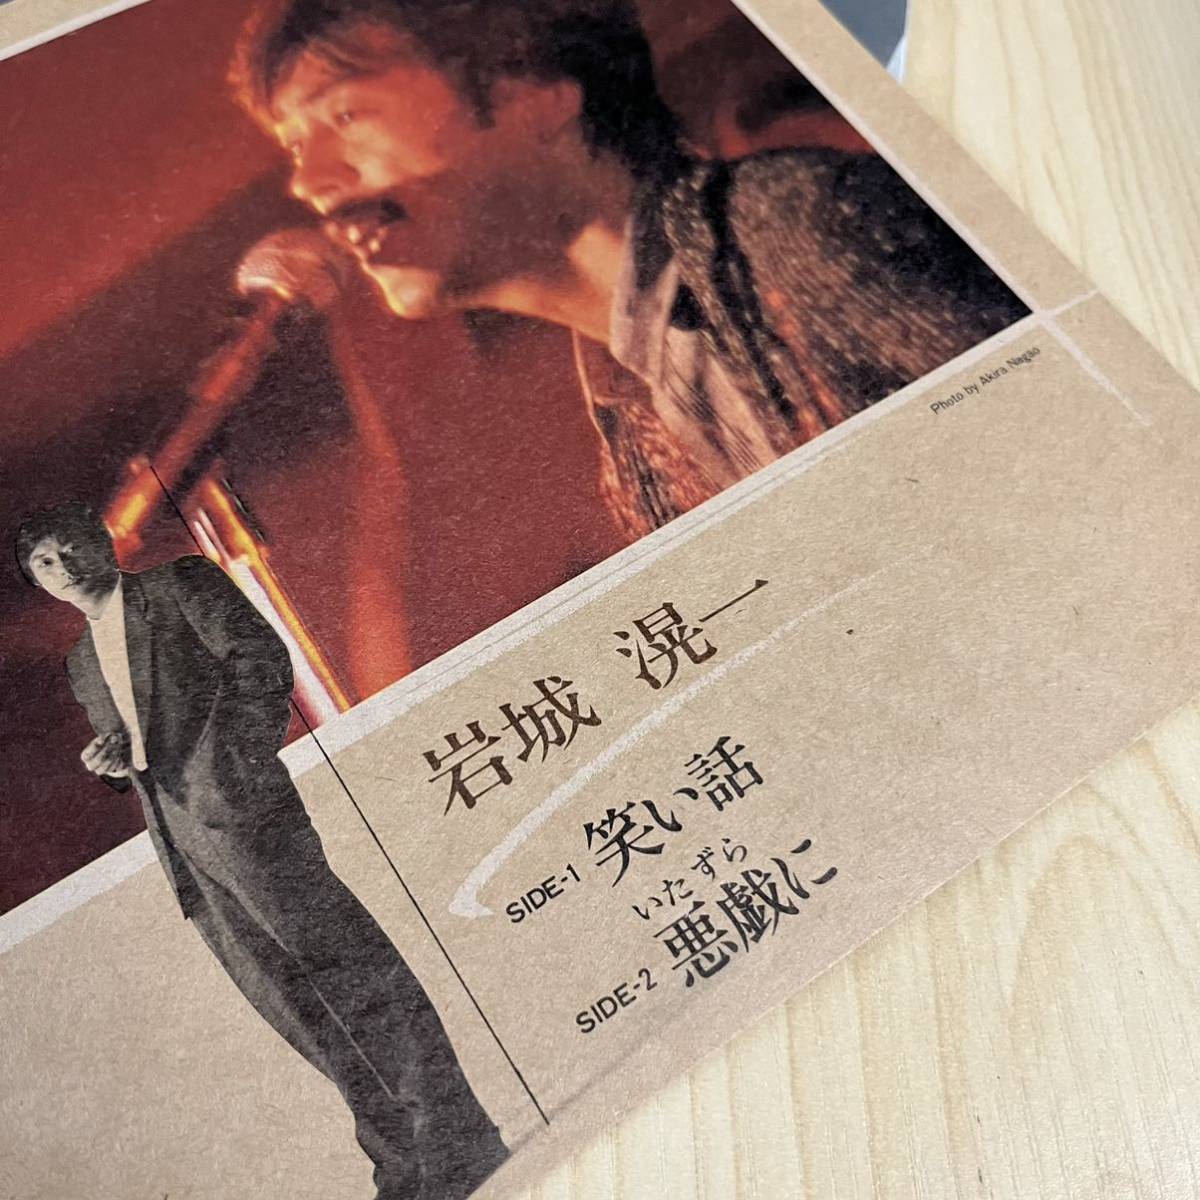 Photo by Akira Nagao
岩城 滉一
SIDE-1 笑い話
いたずら
SIDE-2 悪戯に